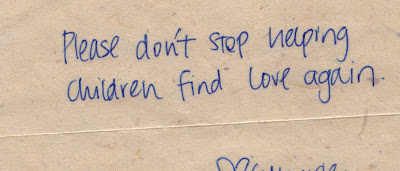 Please don't stop helping
children find love again.